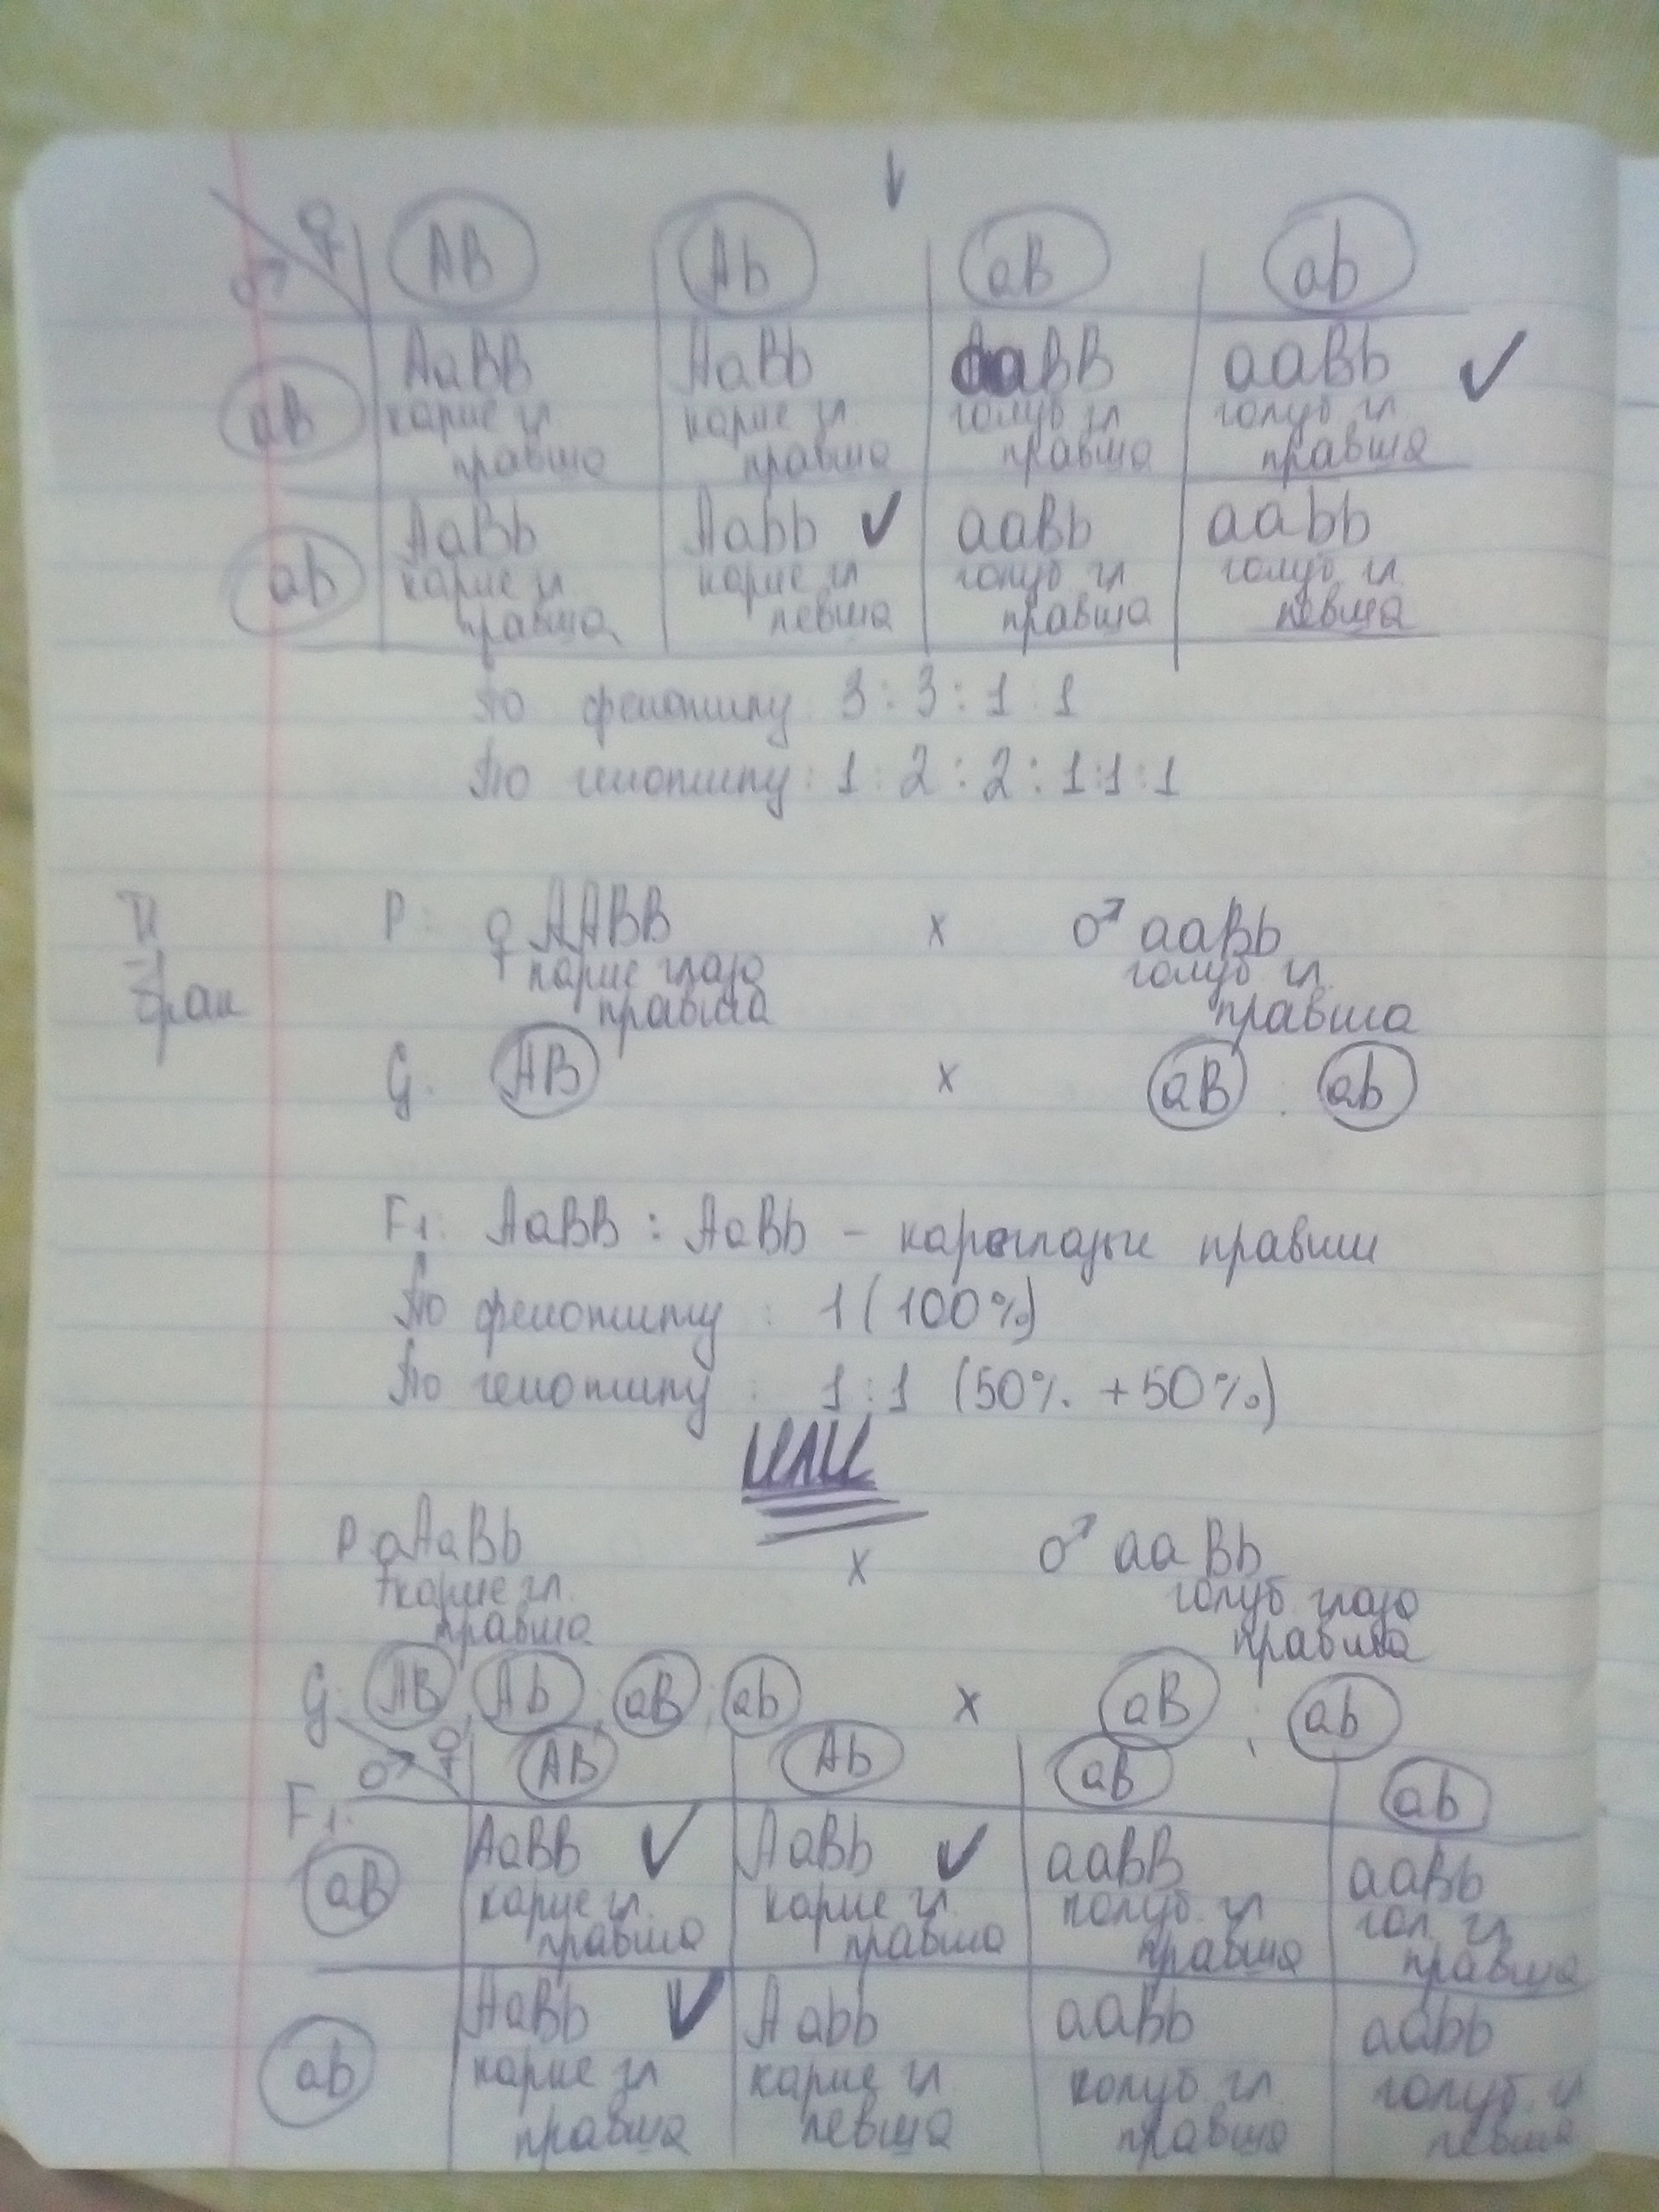 ♂ ♀ AB Ab aB ab
aB AaBB AaBb aaBB aaBb ✓
карие гл карие гл голуб гл голуб гл
правша правша правша правша
ab AaBb Aabb ✓ aaBb aabb
карие гл карие гл голуб гл голуб гл
правша левша правша левша
По фенотипу 3 : 3 : 1 : 1
По генотипу : 1 : 2 : 2 : 1 : 1 : 1
II P: ♀ AABB x ♂ aaBb
брак карие глаза голуб гл.
правша правша
G. AB x aB ; ab
F1: AaBB : AaBb – кареглазые правши
По фенотипу : 1 (100%)
По генотипу : 1 : 1 (50% + 50%)
ИЛИ
P ♀ AaBb x ♂ aa Bb
карие гл. голуб глаза
правша правша
G. AB ; Ab ; aB ; ab x aB ; ab
♂ ♀ AB Ab aB ab
F1.
aB AaBB ✓ AaBb ✓ aaBB aaBb
карие гл. карие гл голуб. гл гол. гл.
правша правша правша правша
ab AaBb ✓ Aabb aaBb aabb
карие гл карие гл голуб гл голуб. гл
правша левша правша левша